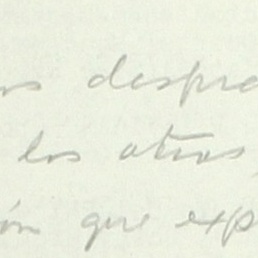 os despra
los otros,
ón que exp